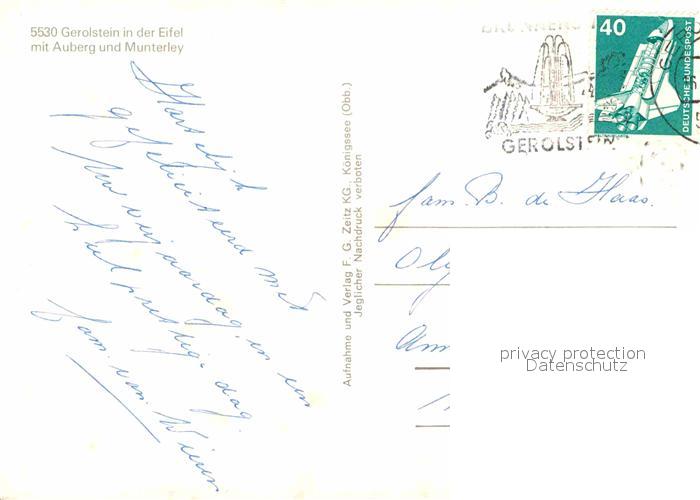 5530 Gerolstein in der Eifel
mit Auberg und Munterley
Hartelijk
gefeliciteerd met
uw verjaardag en een
heel prettige dag.
fam. van
Aufnahme und Verlag F. G. Zeitz KG., Königssee (Obb.)
Jeglicher Nachdruck verboten
GEROLSTEIN
40
DEUTSCHE BUNDESPOST
fam. B. de Haas.
privacy protection
Datenschutz